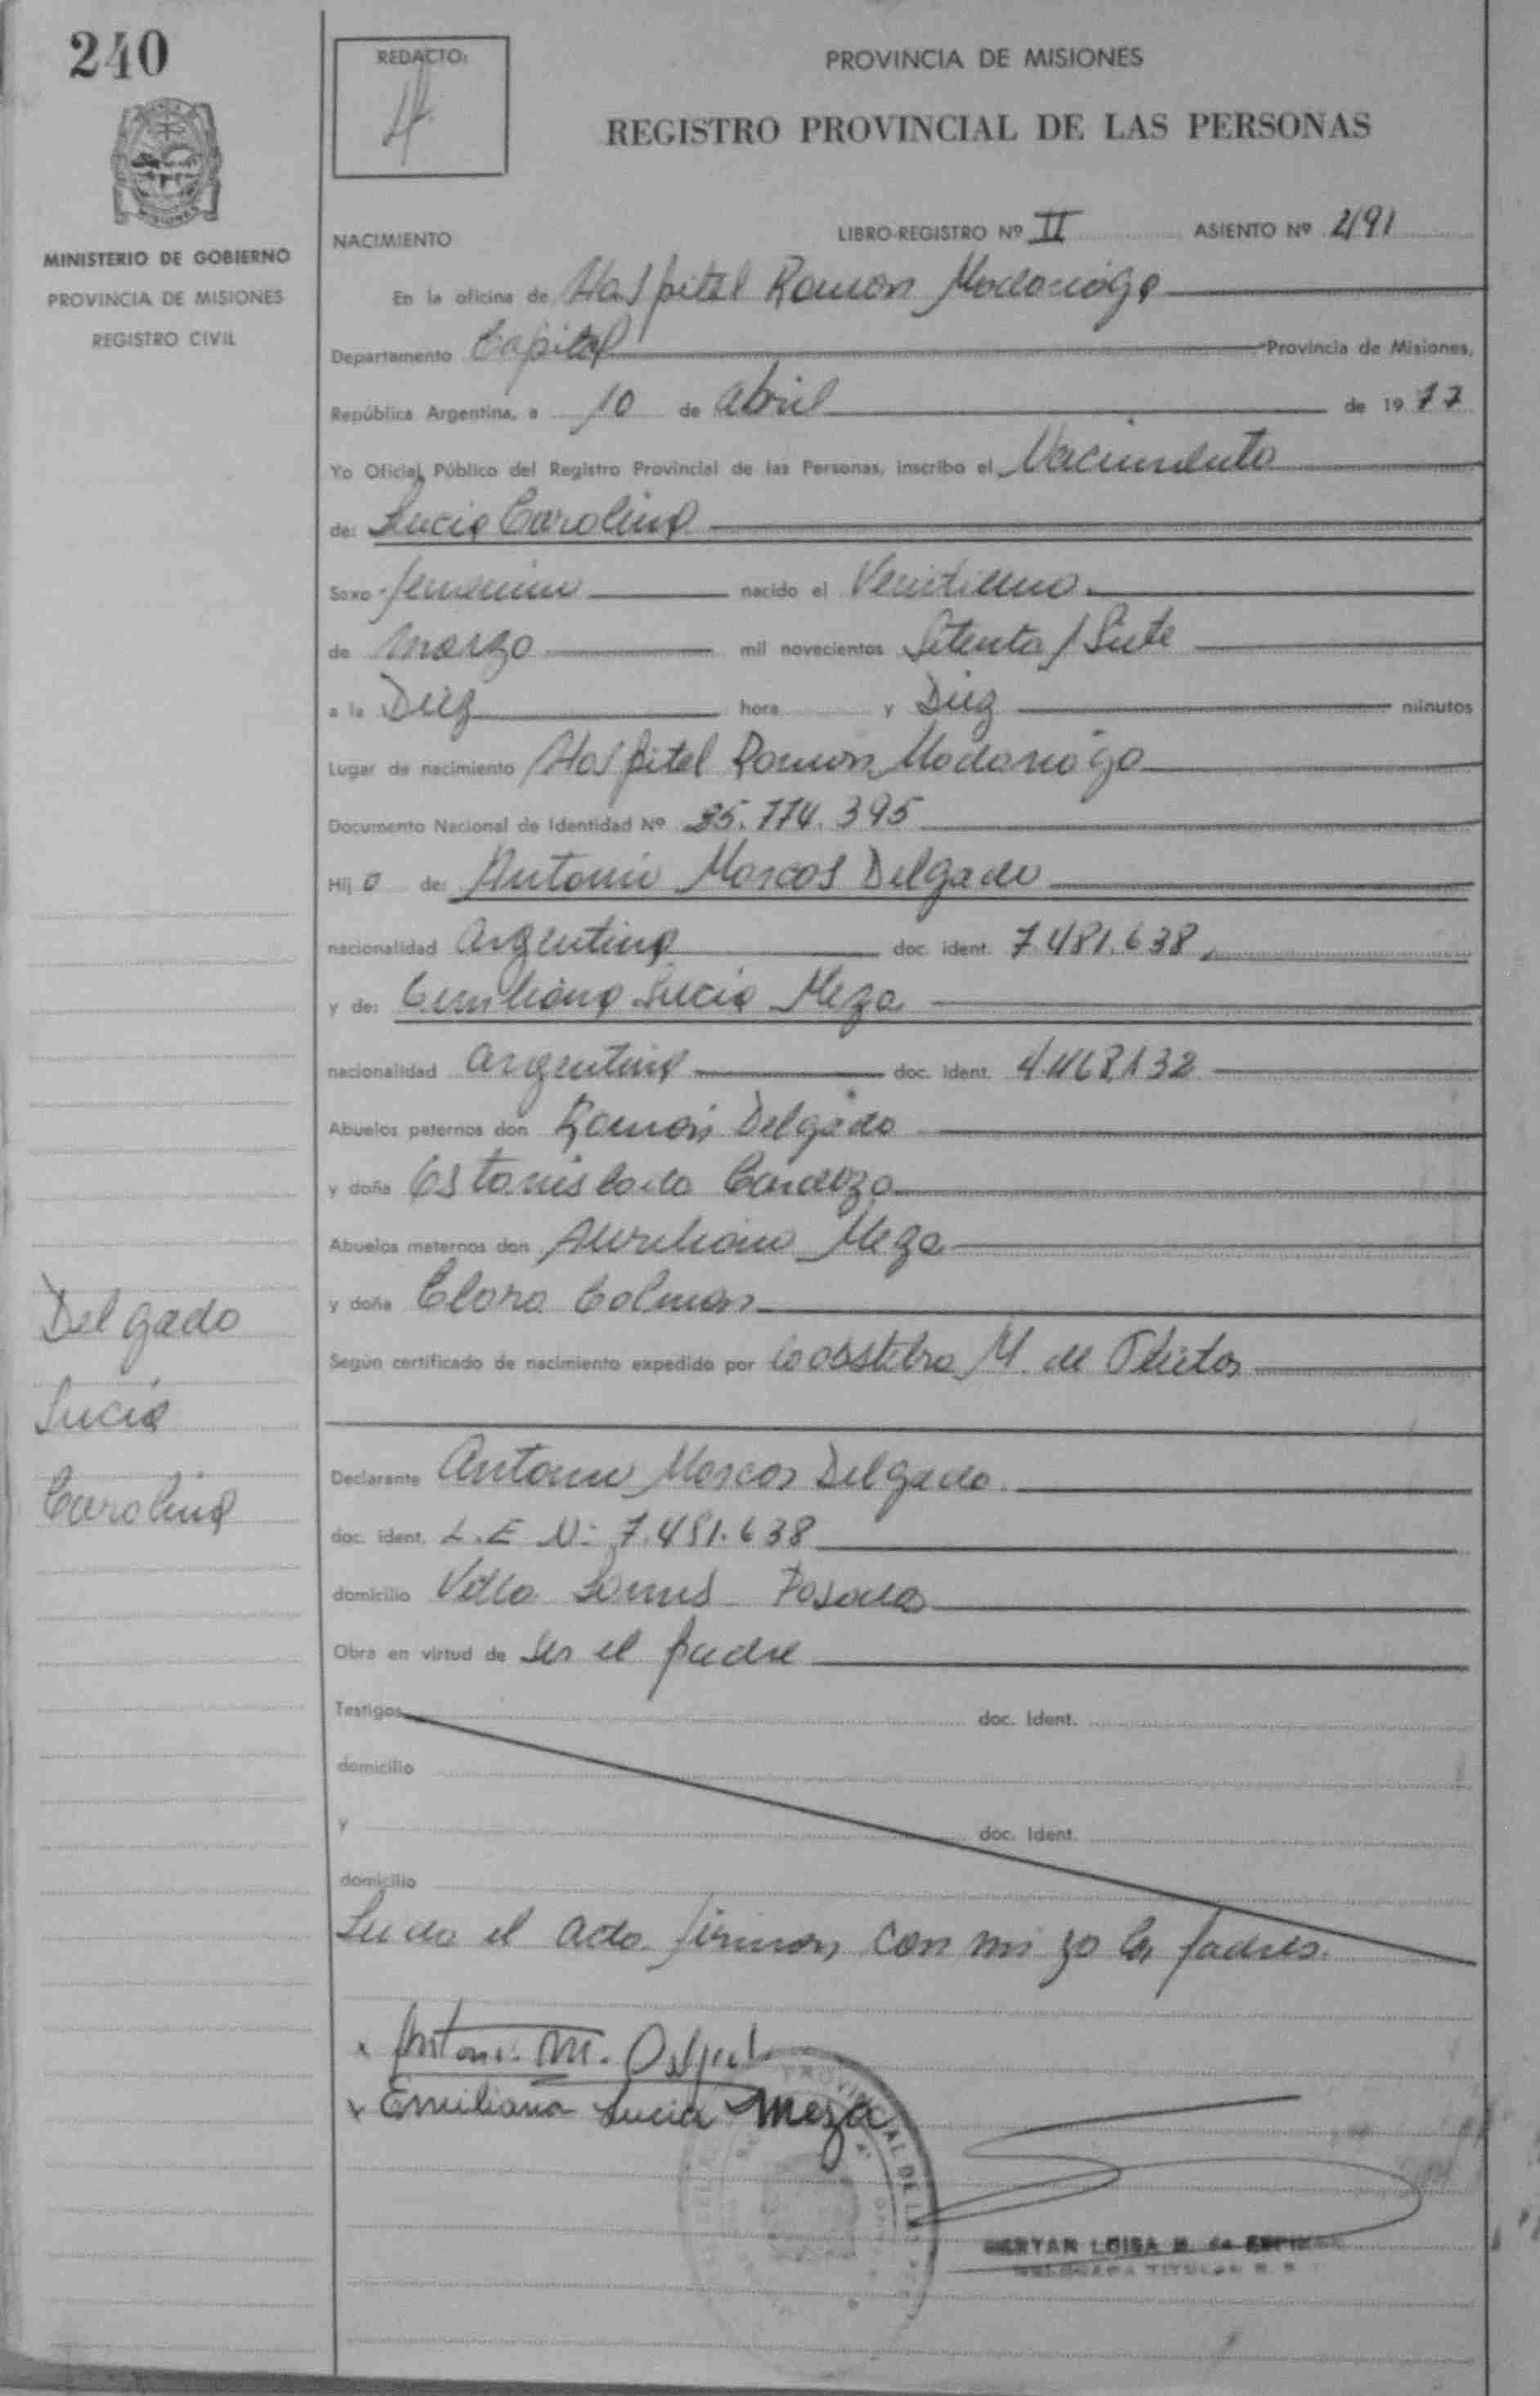 240
MINISTERIO DE GOBIERNO
PROVINCIA DE MISIONES
REGISTRO CIVIL
REDACTO:
PROVINCIA DE MISIONES
REGISTRO PROVINCIAL DE LAS PERSONAS
NACIMIENTO LIBRO-REGISTRO Nº II ASIENTO Nº 2191
En la oficina de Hospital Ramon Madariaga
Departamento Capital Provincia de Misiones,
República Argentina, a 10 de abril de 19 77
Yo Oficial Público del Registro Provincial de las Personas, inscribo el Nacimiento
de: Lucia Carolina
Sexo femenino nacido el Veintiuno
de marzo mil novecientos Setenta / Siete
a la Diez hora y Diez minutos
Lugar de nacimiento Hospital Ramon Madariaga
Documento Nacional de Identidad Nº 25.774.395
Hij a de: Antonio Marcos Delgado
nacionalidad argentina doc. ident. 7.481.638
y de: Emiliana Lucia Meza
nacionalidad argentina doc. ident.
Abuelos paternos don Ramón Delgado
y doña Estanislada Cardozo
Abuelos maternos don Aureliano Meza
y doña Clara Colman
Según certificado de nacimiento expedido por M. de
Declarante Antonio Marcos Delgado
doc. ident. L.E Nº 7.481.638
domicilio Villa Posadas
Obra en virtud de ser el padre
Testigos doc. Ident.
domicilio
y doc. Ident.
domicilio
Leida el acta firman con mi yo los padres.
Delgado
Lucia
Carolina
Antoni M. Delgado
Emiliana Lucia Meza
PROVINCIAL DE
LOISA